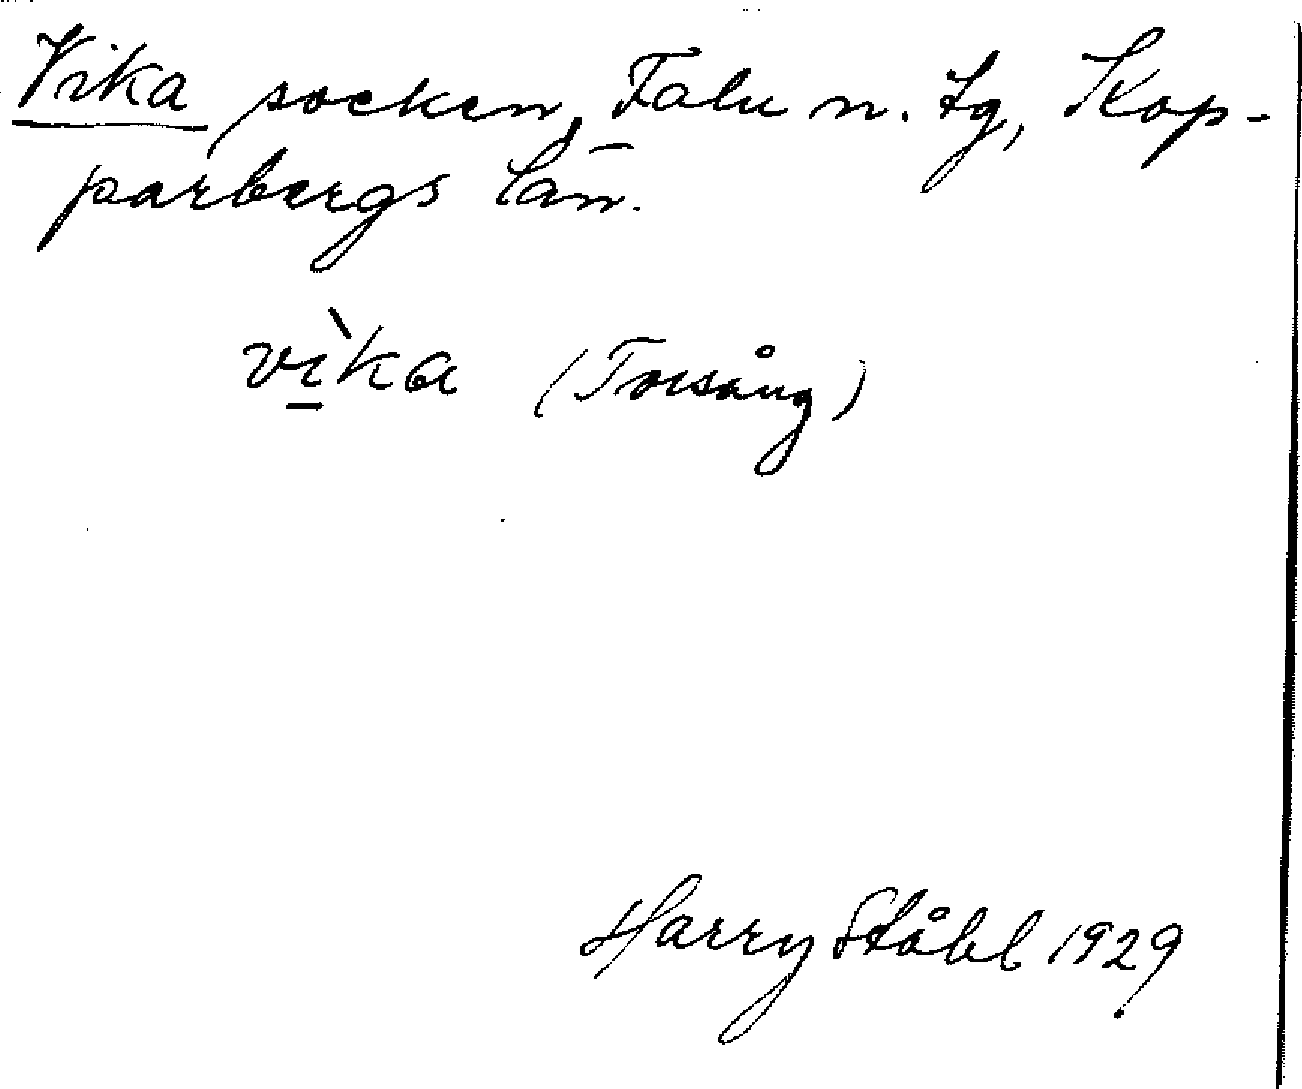 Vika socken, Falu n. tg, Kop-
parbergs län.
vìka (Torsång)
Harry Ståhl 1929